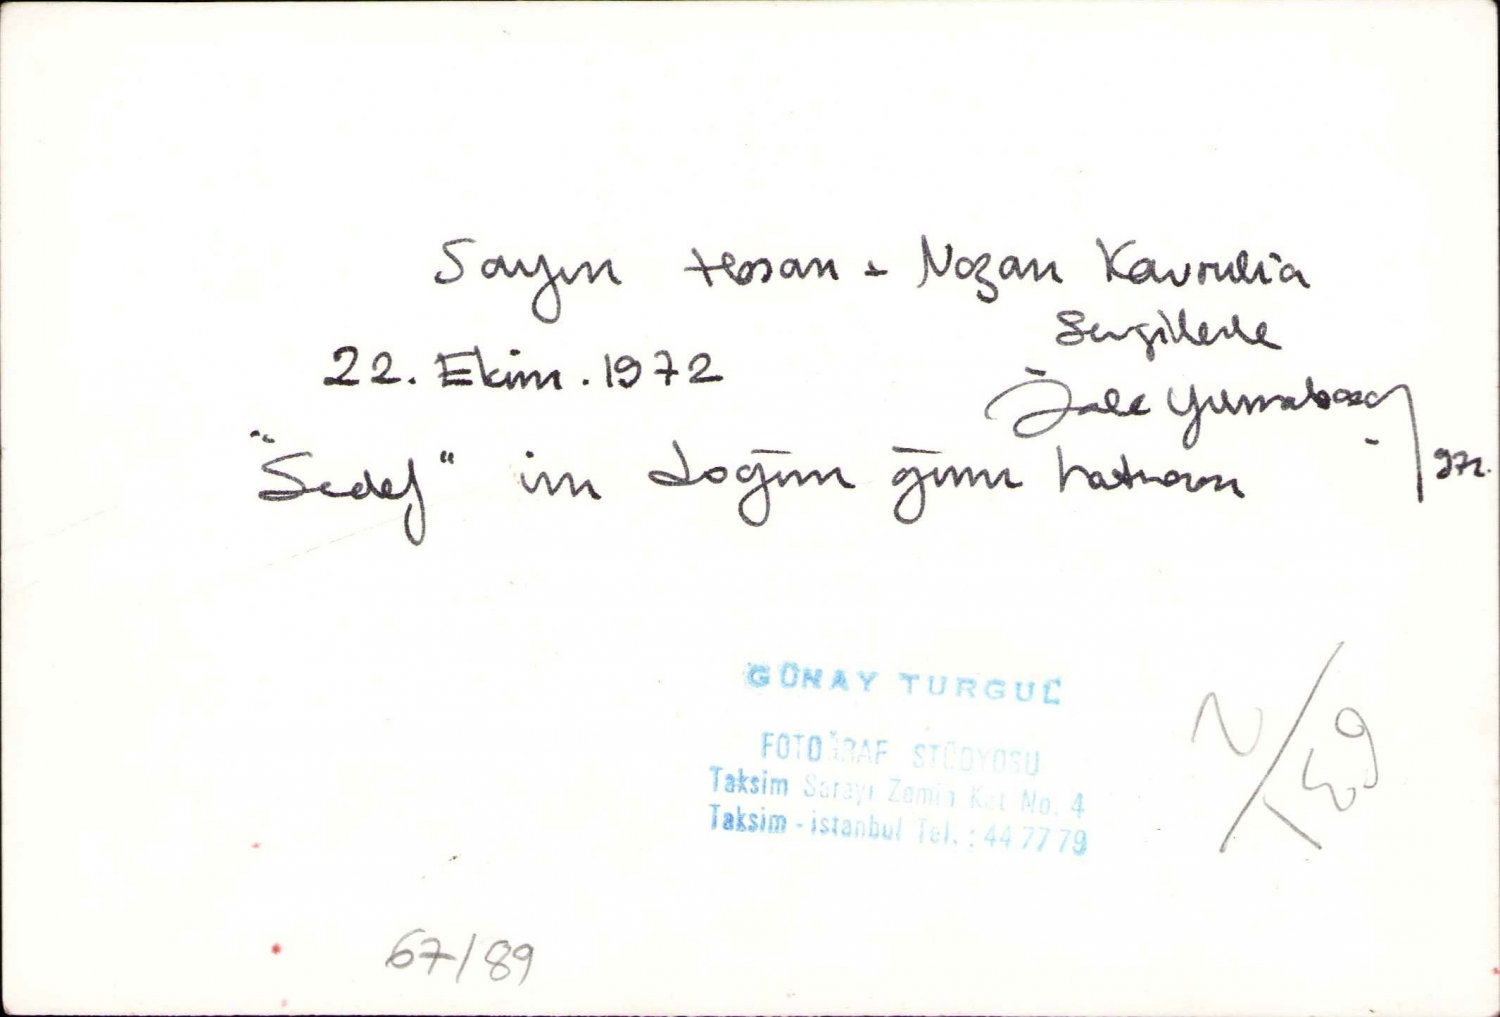 Sayın Hasan - Nazan Kavrulia
Sevgilerle
22. Ekim. 1972
Jale Yumrubaş
972.
"Sedef" in doğum günü hatırası
GÜNAY TURGUL
FOTOĞRAF STÜDYOSU
Taksim Sarayı Zemin Kat No. 4
Taksim - istanbul Tel. : 44 77 79
67/89